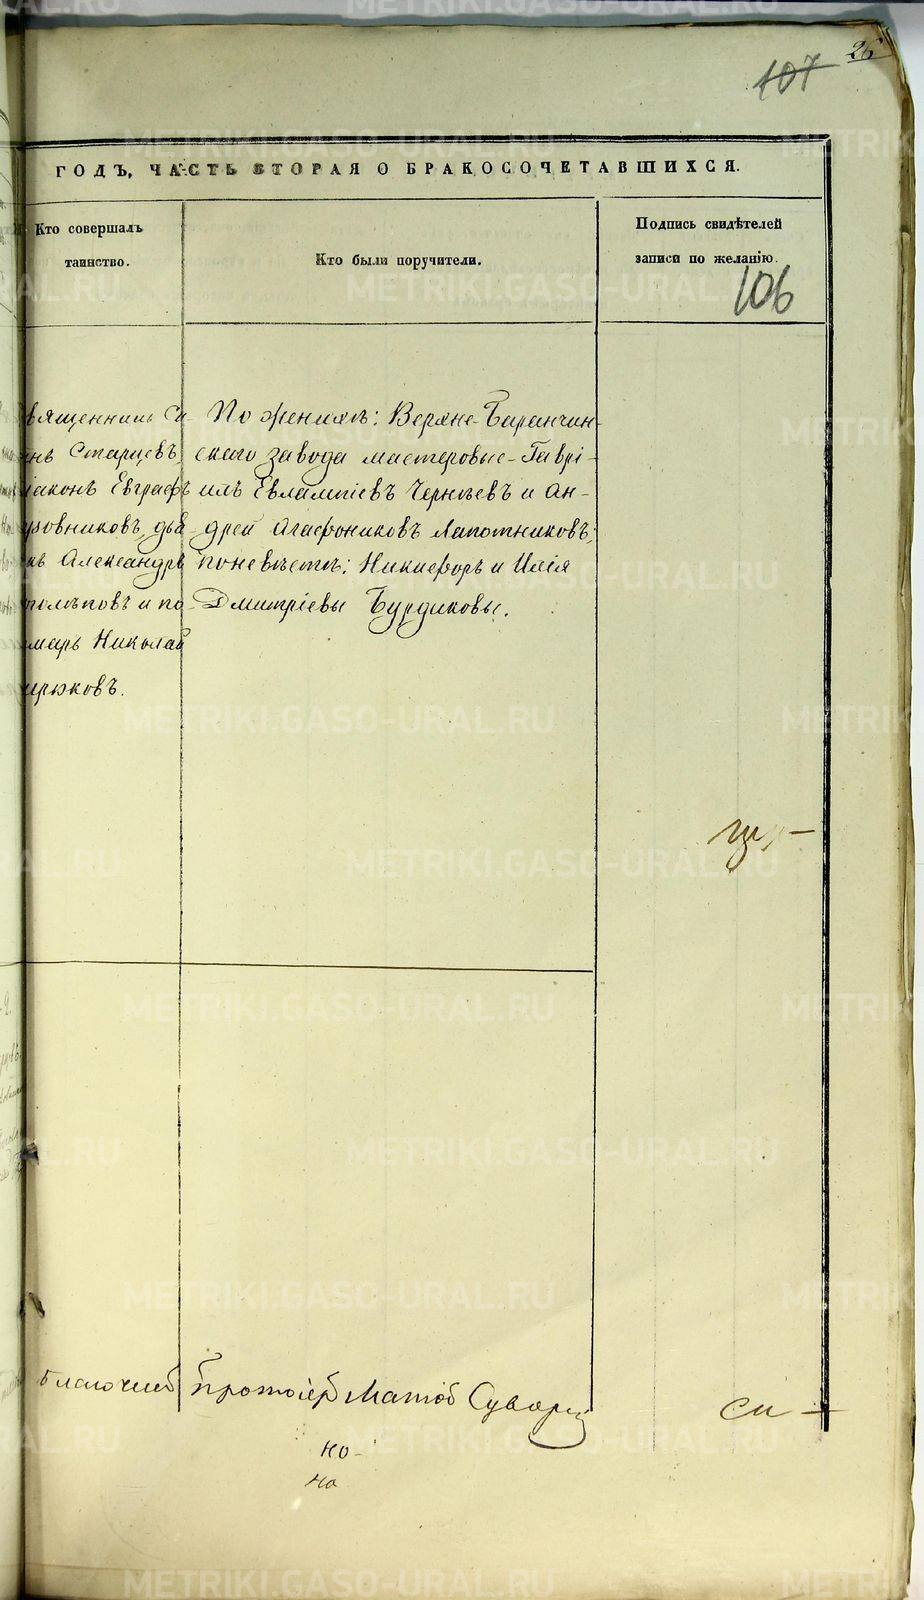 26
107
ГОДЪ, ЧАСТЬ ВТОРАЯ О БРАКОСОЧЕТАВШИХСЯ.
Кто совершалъ
таинство.
Кто были поручители.
Подпись свидѣтелей
записи по желанію.
106
вященникъ Си
нъ Старцевъ,
іаконъ Евграфъ
ровниковъ, дья
къ Александръ
полѣповъ и по
марь Николай
ирюковъ.
По женихѣ: Верхне-Баранчин-
скаго завода мастеровые - Гаврі-
илъ Евлампіевъ Черноевъ и Ан-
дрей Агафониковъ Лапотниковъ;
поневѣстѣ: Никифоръ и Илія
Дмитріевы Бурдиковы.
Благочин Протоіер
но-
но
METRIKI.GASO-URAL.RU